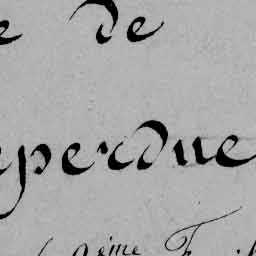 e de
perdue
9eme F